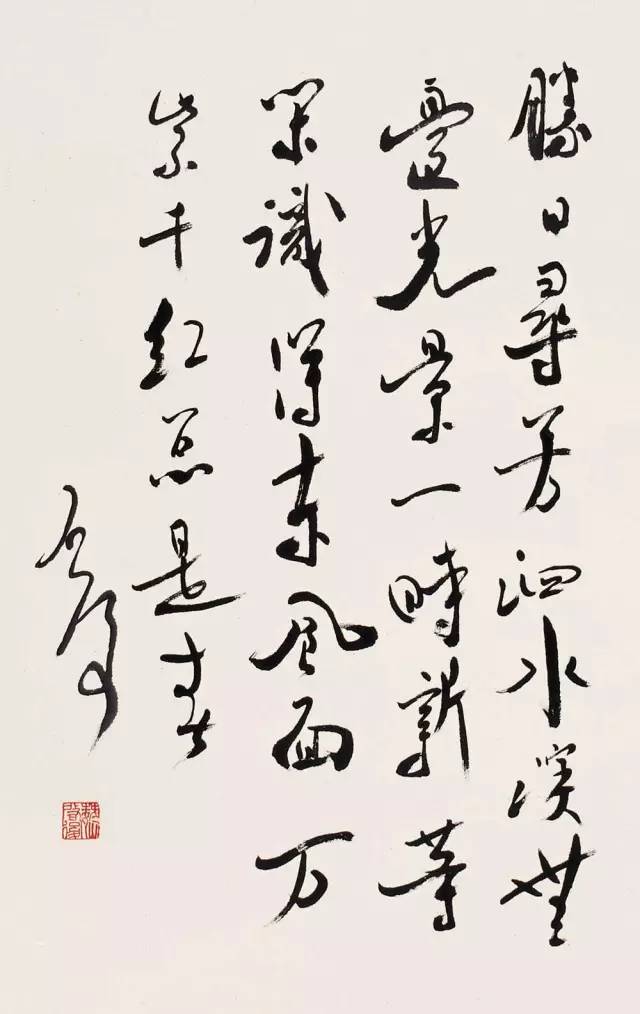 勝日尋芳泗水濱無
邊光景一時新等
閑識得東風面万
紫千紅總是春
启後